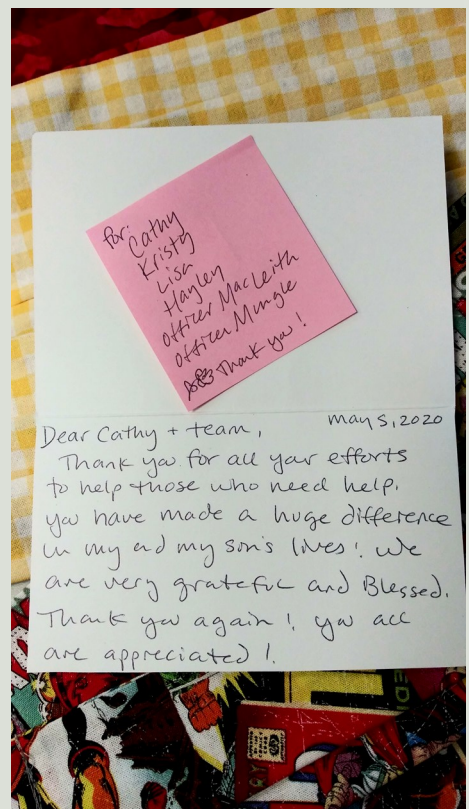 for:
Cathy
Kristy
Lisa
Hayley
Officer MacLeith
Officer Mungle
Thank you!
May 5, 2020
Dear Cathy + team,
Thank you for all your efforts
to help those who need help.
you have made a huge difference
in my and my son's lives! We
are very grateful and Blessed.
Thank you again! you all
are appreciated!